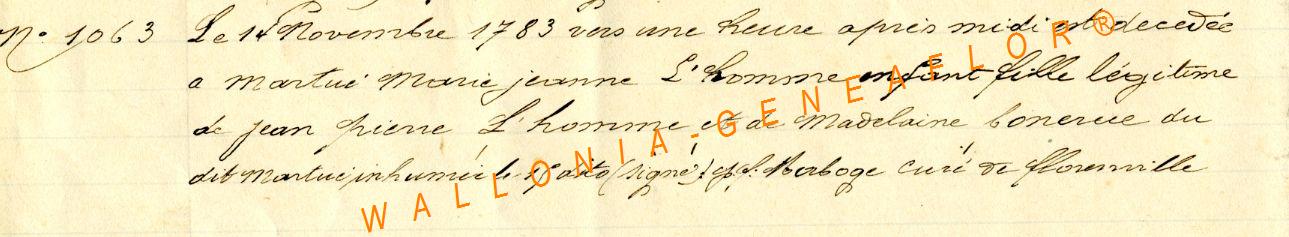 No 1063 Le 14 Novembre 1783 vers une heure après midi est decedée
a martué Marie jeanne L'homme enfant fille légitime
de jean pierre L'homme et de Madelaine bonerue du
dit Martué inhumée le dito (signé) Merboge curé de florenville
WALLONIA-GENEAFLOR®